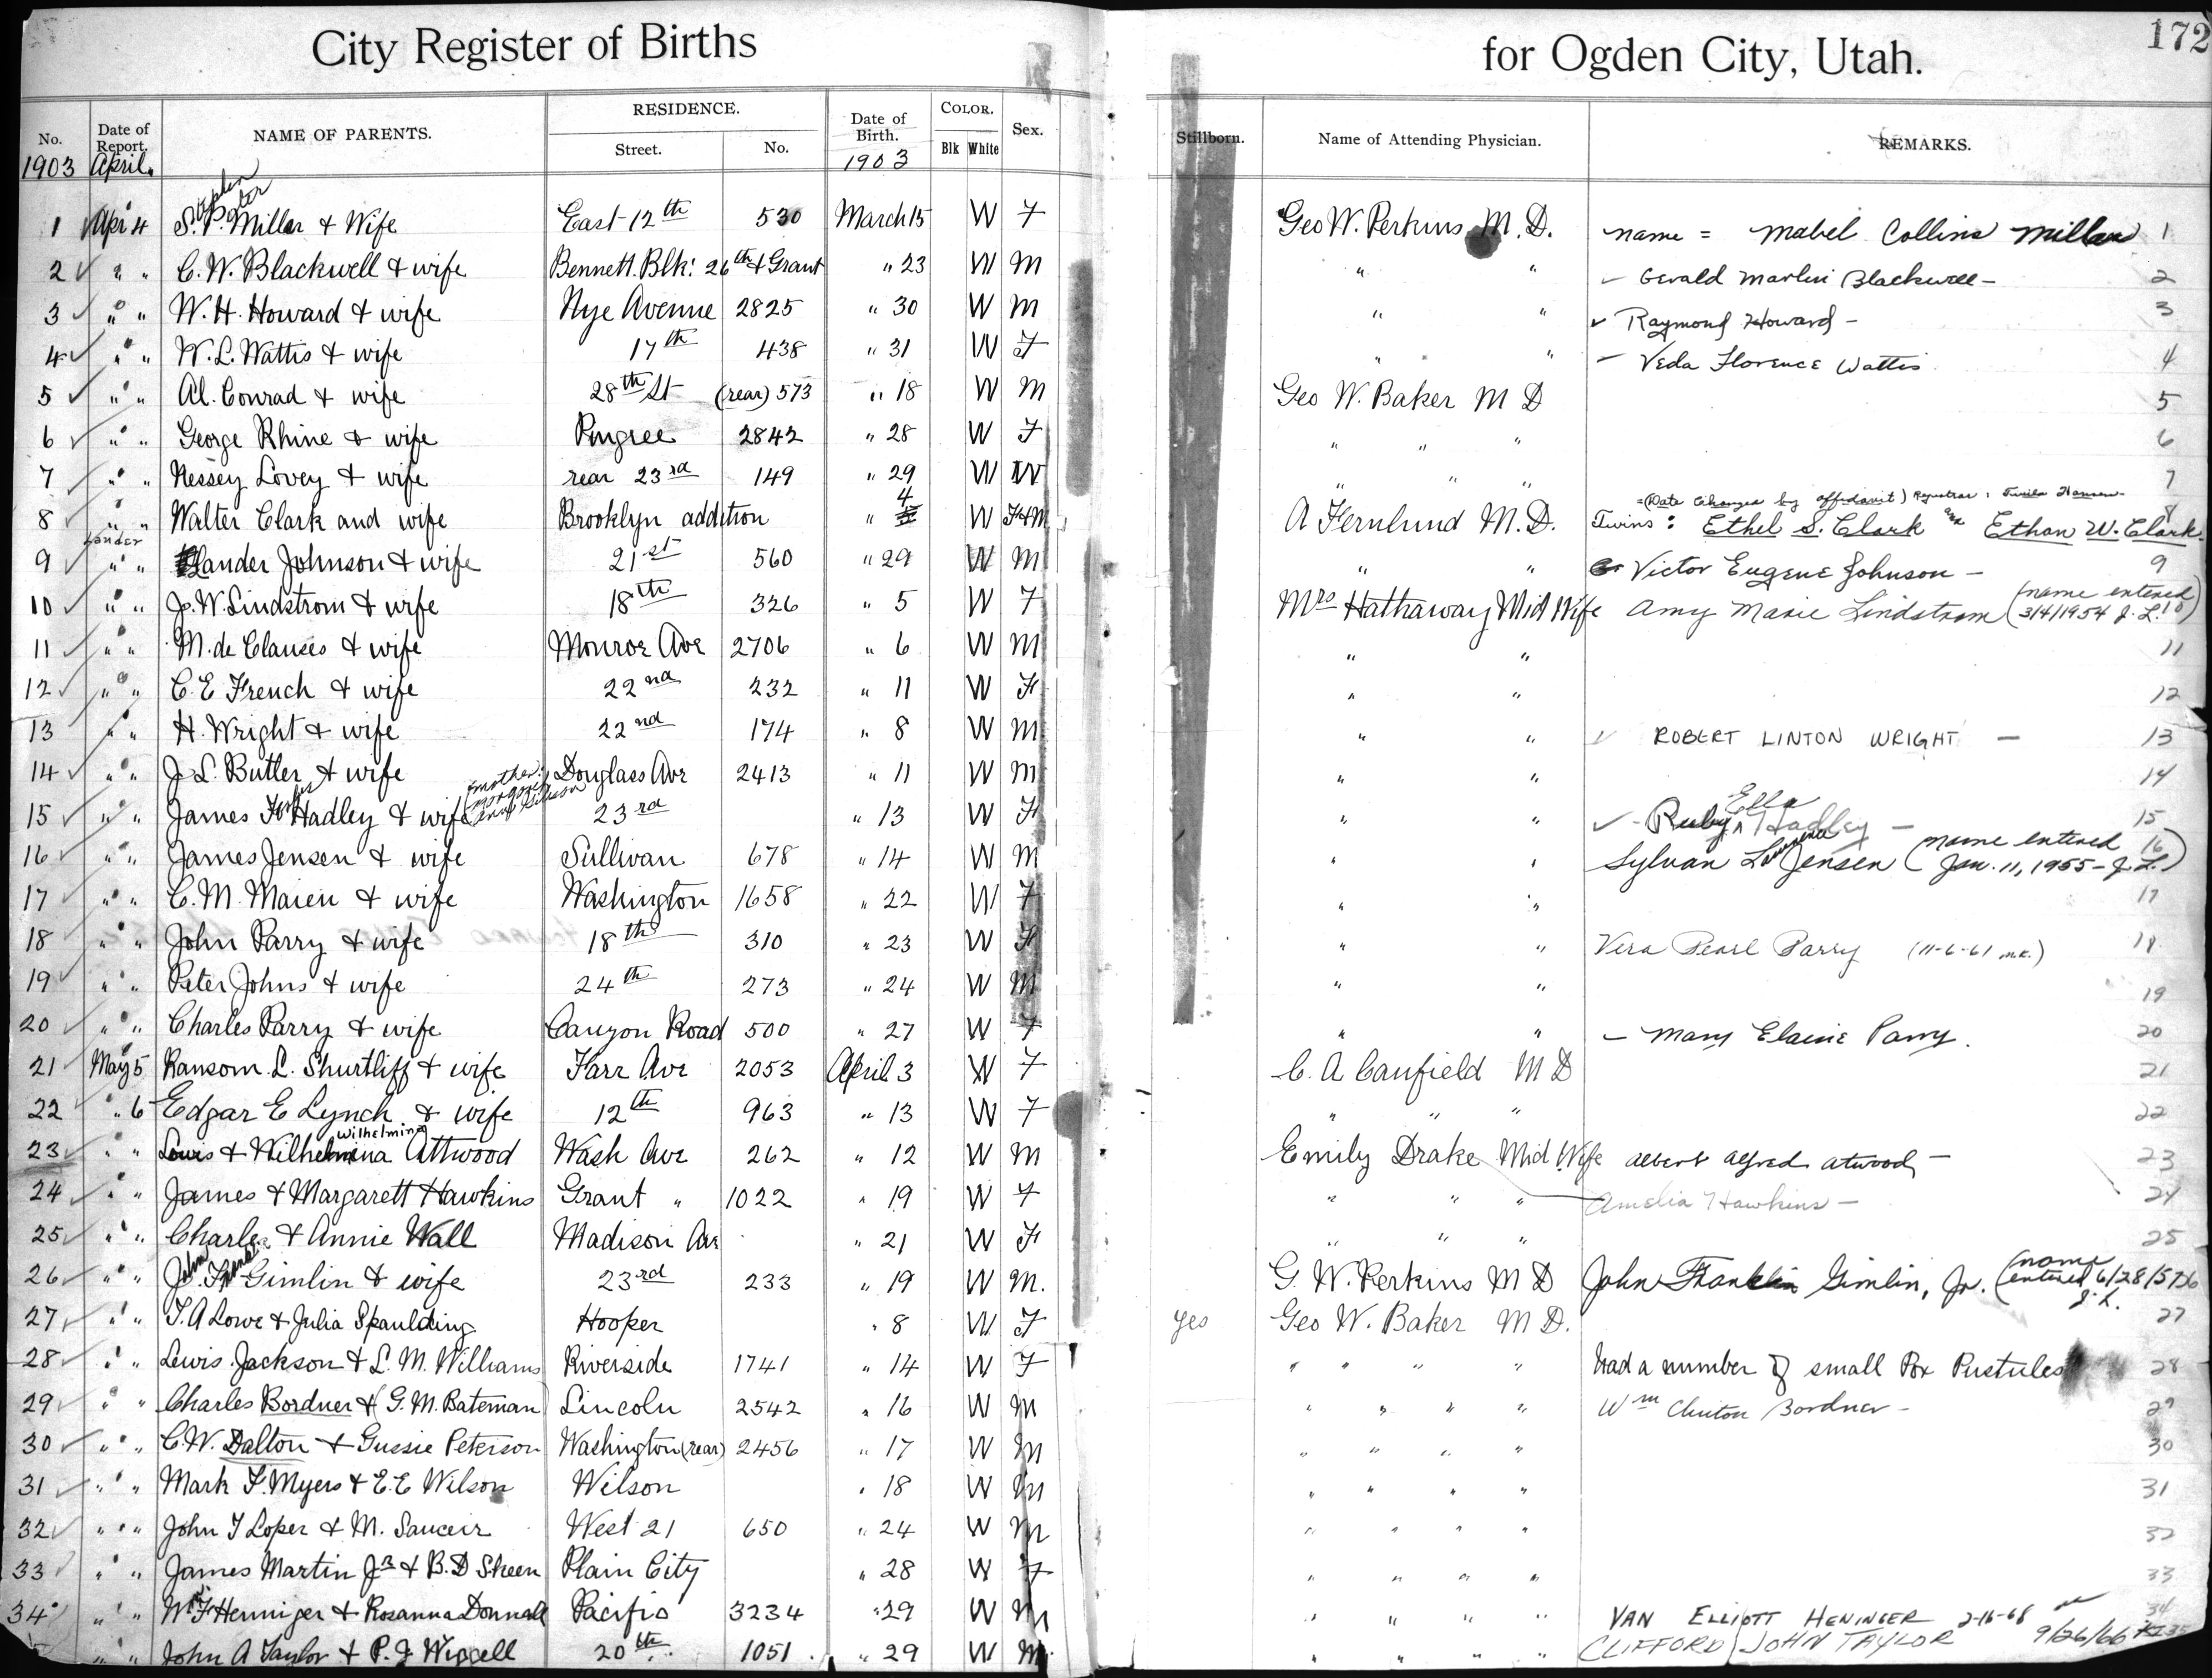 City Register of Births for Ogden City, Utah. 172
No. Date of Report. NAME OF PARENTS. RESIDENCE. Street. No. Date of Birth. COLOR. Blk White Sex. Stillborn. Name of Attending Physician. REMARKS.
1903 April. 1903
Stephen Porter
1 Apr 4 S. P. Miller & Wife East 12th 530 March 15 W F Geo W. Perkins M.D. name = Mabel Collins Miller 1
2 " " C. W. Blackwell & wife Bennett Blk: 26th & Grant " 23 W M " " Gerald Marlin Blackwell - 2
3 " " W. H. Howard & wife Nye Avenue 2825 " 30 W M " " Raymond Howard - 3
4 " " W. L. Wattis & wife 17th 438 " 31 W F " " " Veda Florence Wattis 4
5 " " Al. Conrad & wife 28th St (rear) 573 " 18 W M Geo W. Baker M D 5
6 " " George Rhine & wife Pingree 2842 " 28 W F " " " 6
7 " " Nessey Lovey & wife rear 23rd 149 " 29 W " " " 7
= (Date Changed by affidavit) Registrar: Twila Hansen
8 " " Walter Clark and wife Brooklyn addition " 4 W F & M A Fernlund M.D. Twins: Ethel S. Clark and Ethan W. Clark. 8
Lander
9 " " Lander Johnson & wife 21st 560 " 29 W M " " Victor Eugene Johnson - 9
10 " " J. W. Lindstrom & wife 18th 326 " 5 W F Mrs Hathaway Mid Wife Amy Marie Lindstrom (name entered 3/4/1954 J. L.) 10
11 " " M. de Clauses & wife Monroe Ave 2706 " 6 W M " " 11
12 " " C. E French & wife 22nd 232 " 11 W F " " 12
13 " " H. Wright & wife 22nd 174 " 8 W M " " ROBERT LINTON WRIGHT - 13
14 " " J. L. Butler & wife Douglass Ave 2413 " 11 W M " " 14
15 " " James Hadley & wife mother: 23rd " 13 W F " " Ruby Ella Hadley - 15
16 " " James Jensen & wife Sullivan 678 " 14 W M " " Sylvan Lawrence Jensen (name entered Jan. 11, 1955 - J. L.) 16
17 " " C. M. Maien & wife Washington 1658 " 22 W F " " 17
18 " " John Parry & wife 18th 310 " 23 W F " " Vera Pearl Parry (11-6-61 m.c.) 18
19 " " Peter Johns & wife 24th 273 " 24 W M " " 19
20 " " Charles Parry & wife Canyon Road 500 " 27 W F " " - Mary Elaine Parry. 20
21 May 5 Ransom. L. Shurtliff & wife Farr Ave 2053 April 3 W F C. A Canfield M D 21
22 " 6 Edgar E Lynch & wife 12th 963 " 13 W F " " " 22
Wilhelmina
23 " " Louis & Wilhelmina Attwood Wash Ave 262 " 12 W M Emily Drake Mid Wife Albert Alfred Atwood - 23
24 " " James & Margarett Hawkins Grant " 1022 " 19 W F " " " Amelia Hawkins - 24
25 " " Charles & Annie Wall Madison Ave " 21 W F " " " 25
26 " " John Frank Gimlin & wife 23rd 233 " 19 W M. G. W. Perkins M D John Franklin Gimlin, Jr. (name entered 6/28/57 J. L. 26
27 " " T. A Lowe & Julia Spaulding Hooper " 8 W F yes Geo W. Baker M D. 27
28 " " Lewis Jackson & L. M. Williams Riverside 1741 " 14 W F " " " " had a number of small Pox Pustules 28
29 " " Charles Bordner & (G. M. Bateman) Lincoln 2542 " 16 W M " " " " Wm Clinton Bordner - 29
30 " " C. W. Dalton & Gussie Peterson Washington (rear) 2456 " 17 W M " " " " 30
31 " " Mark F. Myers & E. E Wilson Wilson " 18 W M " " " " 31
32 " " John T Loper & M. Sauceir West 21 650 " 24 W M " " " " 32
33 " " James Martin Jr & B. D Skeen Plain City " 28 W F " " " " 33
34 " " Wm F Henniger & Rosanna Donnall Pacific 3234 " 29 W M " " " " VAN ELLIOTT HENINGER 2-16-68 34
" " John A Taylor & P. J Wiggell 20th 1051 " 29 W M. " " " " CLIFFORD JOHN TAYLOR 9/26/66 35